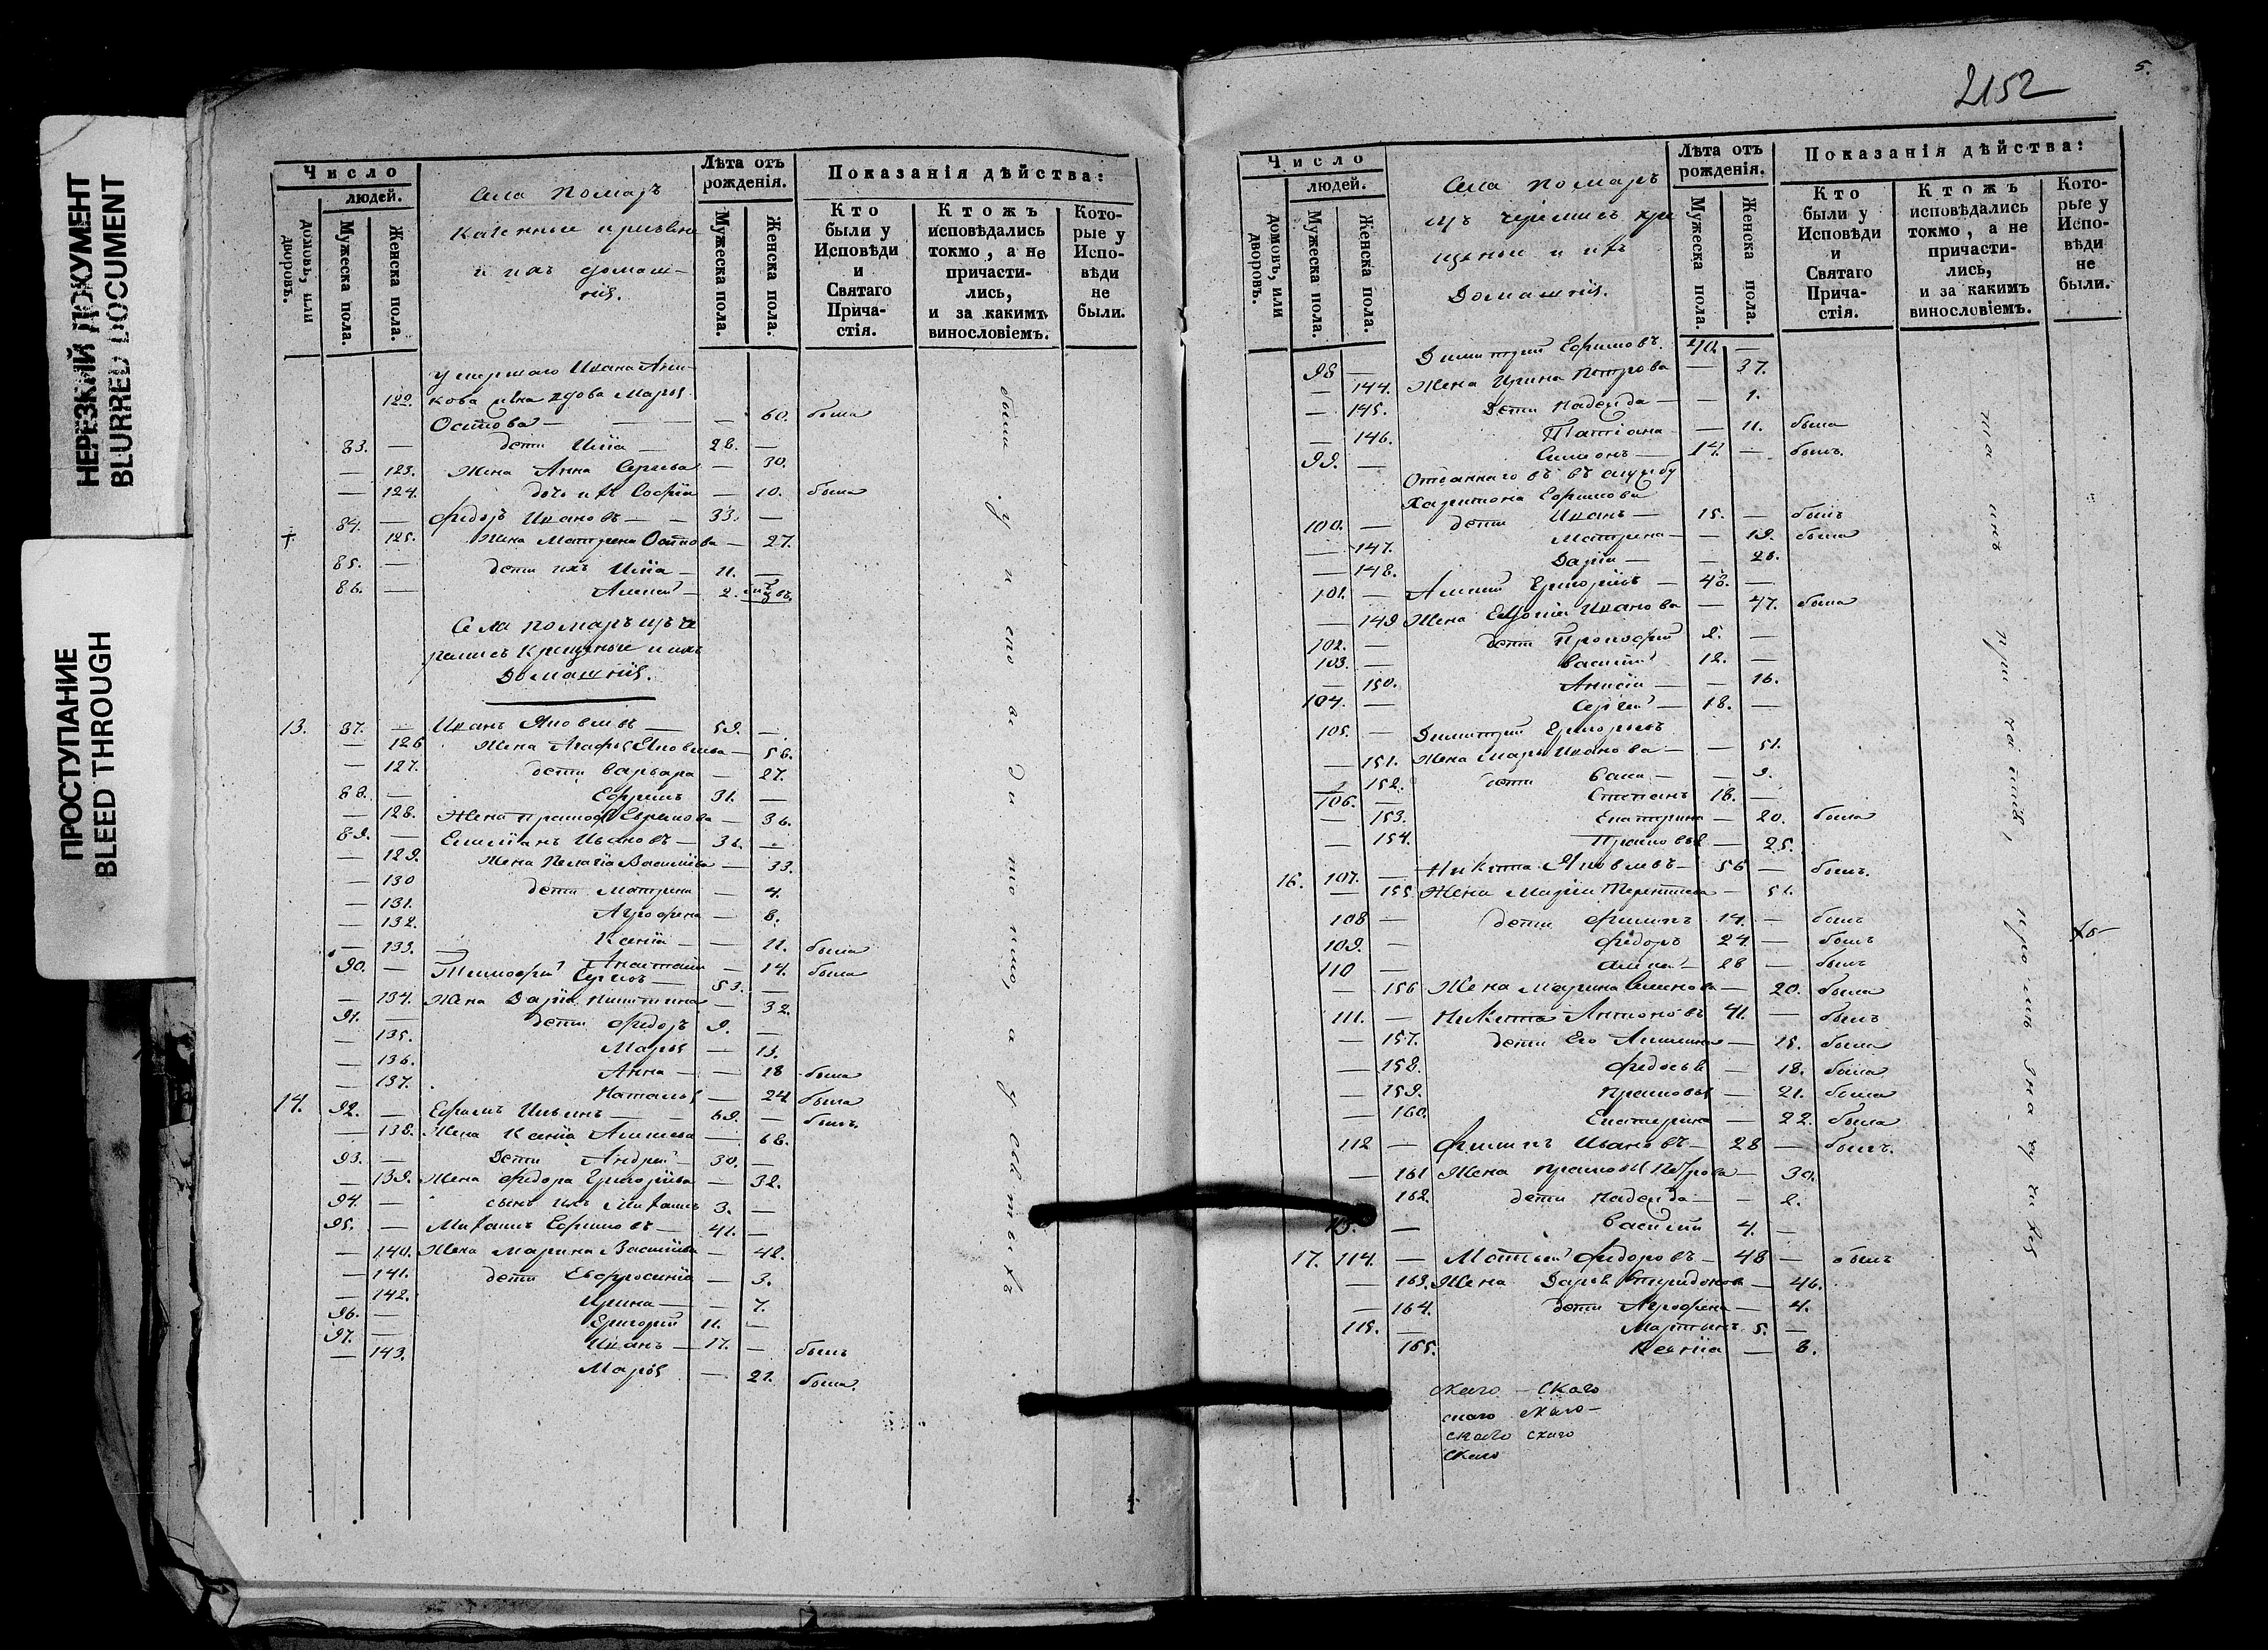 НЕРЕЗКИЙ ДОКУМЕНТ
BLURRED DOCUMENT
ПРОСТУПАНИЕ
BLEED THROUGH
Число
людей.
домовъ, или дворовъ.
Мужеска пола.
Женска пола.
Села Помаръ
и ихъ домаш-
нія.
Лѣта отъ рожденія.
Мужеска пола.
Женска пола.
Показанія дѣйства:
Кто были у Исповѣди и Святаго Причастія.
Ктожъ исповѣдались токмо, а не причастились, и за какимъ винословіемъ.
Которые у Исповѣди не были.
умершаго Ивана
122. кова жена вдова Марья
Осипова — — 60. была
83. — дети Илія — 28. —
— 123. Жена Анна Сергѣева — 30.
— 124. дочь ихъ Софія — 10. была
84. — Федоръ Ивановъ — 33. —
+ 125. Жена Матрена Осипова — 27.
85. — дети ихъ Илія — 11. —
86. — Алексей — 2.
Села Помаръ изъ че
ремисъ Крещеные и ихъ
Домашнія.
13. 87. — Иванъ Яковлевъ — 59. —
— 126 Жена Агафья Яковлева — 56.
— 127. дети Варвара — 27.
88. — Ефремъ 31. —
— 128. Жена — 36.
89. — Емелианъ Ивановъ — 36. —
— 129. Жена Пелагія Васильева — 33.
— 130 дети Матрена — 4.
— 131. Агрофена — 8.
— 132. Ксенія — 11. была
— 133. Анастасия — 14. была
90. — Тимофей Сергѣевъ — 53. —
— 134. Жена Дарія Никитина — 32.
91. — дети Федоръ 9. —
— 135. Марья — 13.
— 136. Анна — 18 была
— 137. Наталья — 24 была
14. 92. — Ефремъ Ильинъ — 69. — былъ
— 138. Жена Ксенія Алексеева — 68.
93. — Дети Андрей 30. —
— 139. Жена Федора Григорьева — 32.
94. — сынъ ихъ Михаилъ 3. —
95. — Михаилъ Ефремовъ 41. —
— 140. Жена Марина Васильева — 42.
— 141. дети Евфросинія — 3.
— 142. Ирина — 7.
96. — Григорий 11. —
97. — Иванъ — 17. — былъ
— 143. Марья — 21. была.
2152
5.
Число
людей.
домовъ, или дворовъ.
Мужеска пола.
Женска пола.
Села Помаръ
изъ черемисъ кре
щеные и ихъ
Домашнія.
Лѣта отъ рожденія.
Мужеска пола.
Женска пола.
Показанія дѣйства:
Кто были у Исповѣди и Святаго Причастія.
Ктожъ исповѣдались токмо, а не причастились, и за какимъ винословіемъ.
Которые у Исповѣди не были.
98 — Димитрий Ефремовъ 40. —
— 144. Жена Ирина Петрова — 37.
— 145. Дети Надежда — 1.
— 146. Татіана — 11. была
99. — Симеонъ — 14. — былъ.
Отданнаго въ службу
Харитона Ефремова
100. — дети Иванъ — 15. — былъ
— 147. Матрена — 19. была
— 148. Дарія —
101. — Алексей Григорьевъ — 48. —
— 149 Жена Ивановa — 47. была
102. — дети Прокофий 2. —
103. — Василий 12. —
— 150. Анисія — 16.
104. — Сергѣй — 18. —
105. — Димитрий Григорьевъ
— 151. Жена Марья Иванова — 51.
152. дети — 9.
106. — Степанъ 18. —
— 153. Екатерина — 20. была
— 154. Прасковья — 25.
16. 107. — Никита Яковлевъ — 56 — былъ.
— 155 Жена Марія Терентьева — 51.
108 — дети Филипъ 14. — былъ
109. — Федоръ 24. — былъ
110 — Алексей 28 — былъ
— 156 Жена Марина Семенова — 20. была
111. — Никита Антоновъ 41. — былъ
— 157. дети Его Акилина — 15. была
— 158. Федосья — 18. была
— 159. Прасковья — 21. была
— 160. Екатерина — 22. была
112 — Филипъ Ивановъ — 28 — былъ.
— 161 Жена Прасковья Петрова — 30.
162. дети Надежда — 2.
113. — Василий 4. —
17. 114. — Матвей Федоровъ — 48 — былъ
— 163. Жена Дарья Спиридонова — 46.
— 164. дети Агрофена — 4.
115. — Мартынъ 5. —
165. Ксенія — 8.
скаго — скаго
скаго скаго —
скаго скаго
скаго